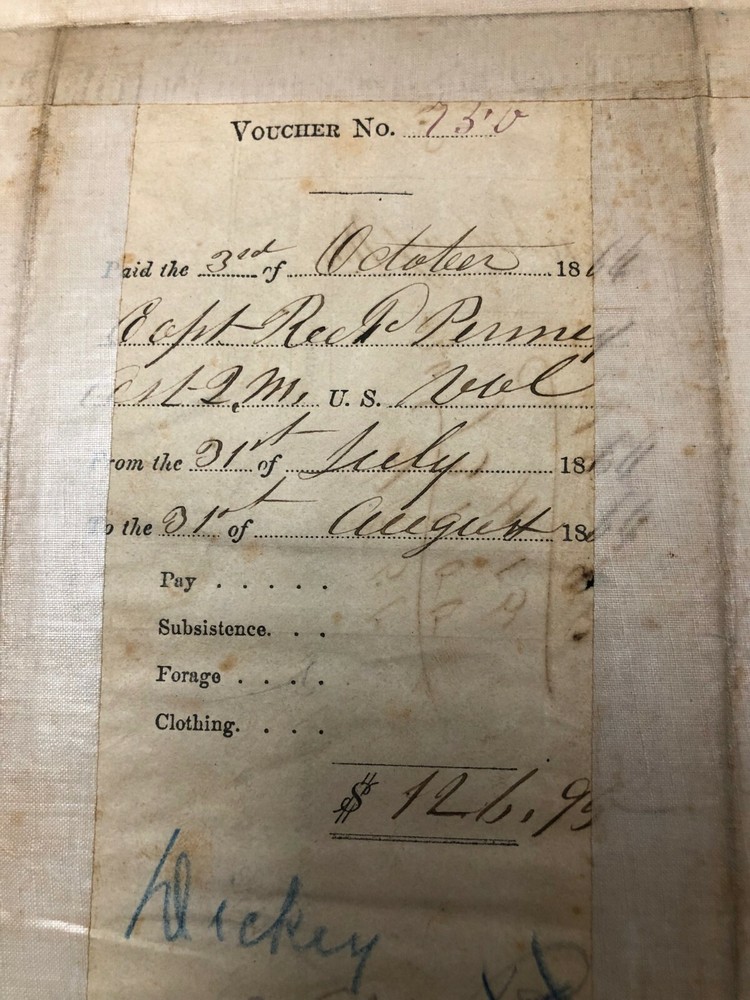 VOUCHER No. 750
Paid the 3rd of October 1864
Capt Rich'd
Asst Q.M. U.S. Vol
From the 31st of July 1864
To the 31st of August 186
Pay . . . . .
Subsistence. . .
Forage . . . .
Clothing. . . .
$ 126.95
Dickey